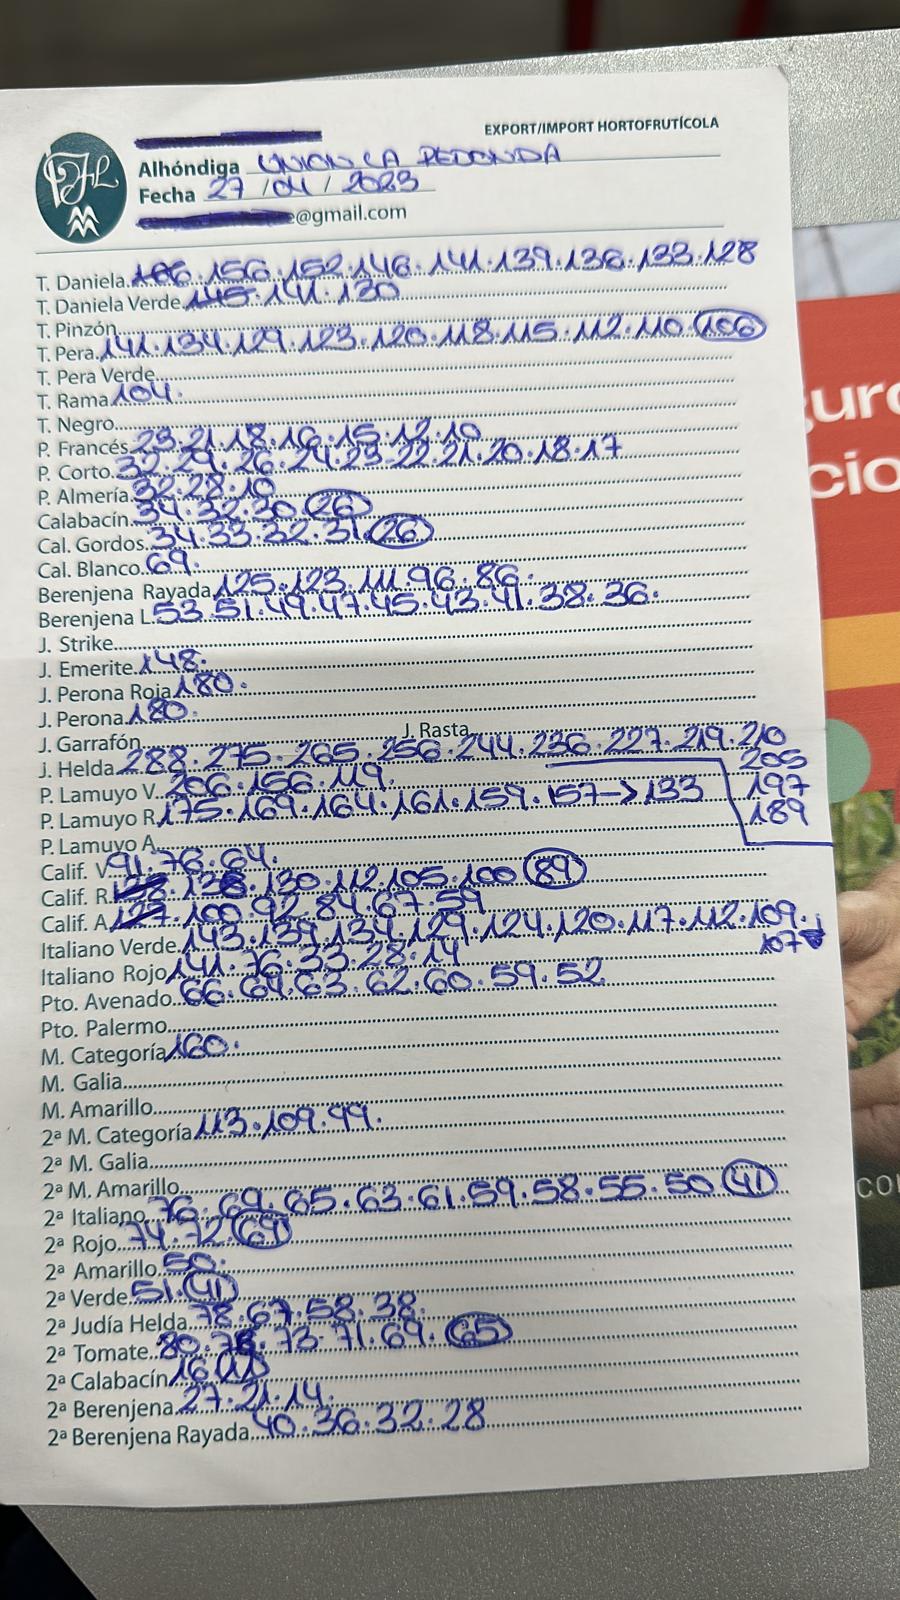 EXPORT/IMPORT HORTOFRUTÍCOLA
Alhóndiga UNION LA REDONDA
Fecha 27/04/2023
e@gmail.com
T. Daniela 166.156.152.146.141.139.136.133.128
T. Daniela Verde 145.141.130
T. Pinzón
T. Pera 141.134.129.123.120.118.115.112.110.106
T. Pera Verde
T. Rama 104.
T. Negro
P. Francés 23.21.18.16.15.12.10
P. Corto 32.29.26.24.23.22.21.20.18.17
P. Almería 32.28.10
Calabacín 34.32.30.26
Cal. Gordos 34.33.32.31.26
Cal. Blanco 69.
Berenjena Rayada 125.123.111.96.86.
Berenjena L. 53.51.49.47.45.43.41.38.36.
J. Strike
J. Emerite 148.
J. Perona Roja 180.
J. Perona 180.
J. Garrafón J. Rasta
J. Helda 288.275.265.256.244.236.227.219.210
205
P. Lamuyo V. 206.156.119. 197
P. Lamuyo R. 175.169.164.161.159.157→133 189
P. Lamuyo A.
Calif. V. 91.76.64.
Calif. R. 130.112.105.100 89
Calif. A. 127.100.92.84.67.59
Italiano Verde 143.139.134.129.124.120.117.112.109.
107
Italiano Rojo 141.76.33.28.14
Pto. Avenado 66.64.63.62.60.59.52
Pto. Palermo
M. Categoría 160.
M. Galia
M. Amarillo
2ª M. Categoría 113.109.99.
2ª M. Galia
2ª M. Amarillo
2ª Italiano 76.69.65.63.61.59.58.55.50.41
2ª Rojo 74.72.69
2ª Amarillo 50.
2ª Verde 51.41
2ª Judía Helda 78.67.58.38.
2ª Tomate 80.73.71.69.65
2ª Calabacín 16.11
2ª Berenjena 27.21.14.
2ª Berenjena Rayada 40.36.32.28